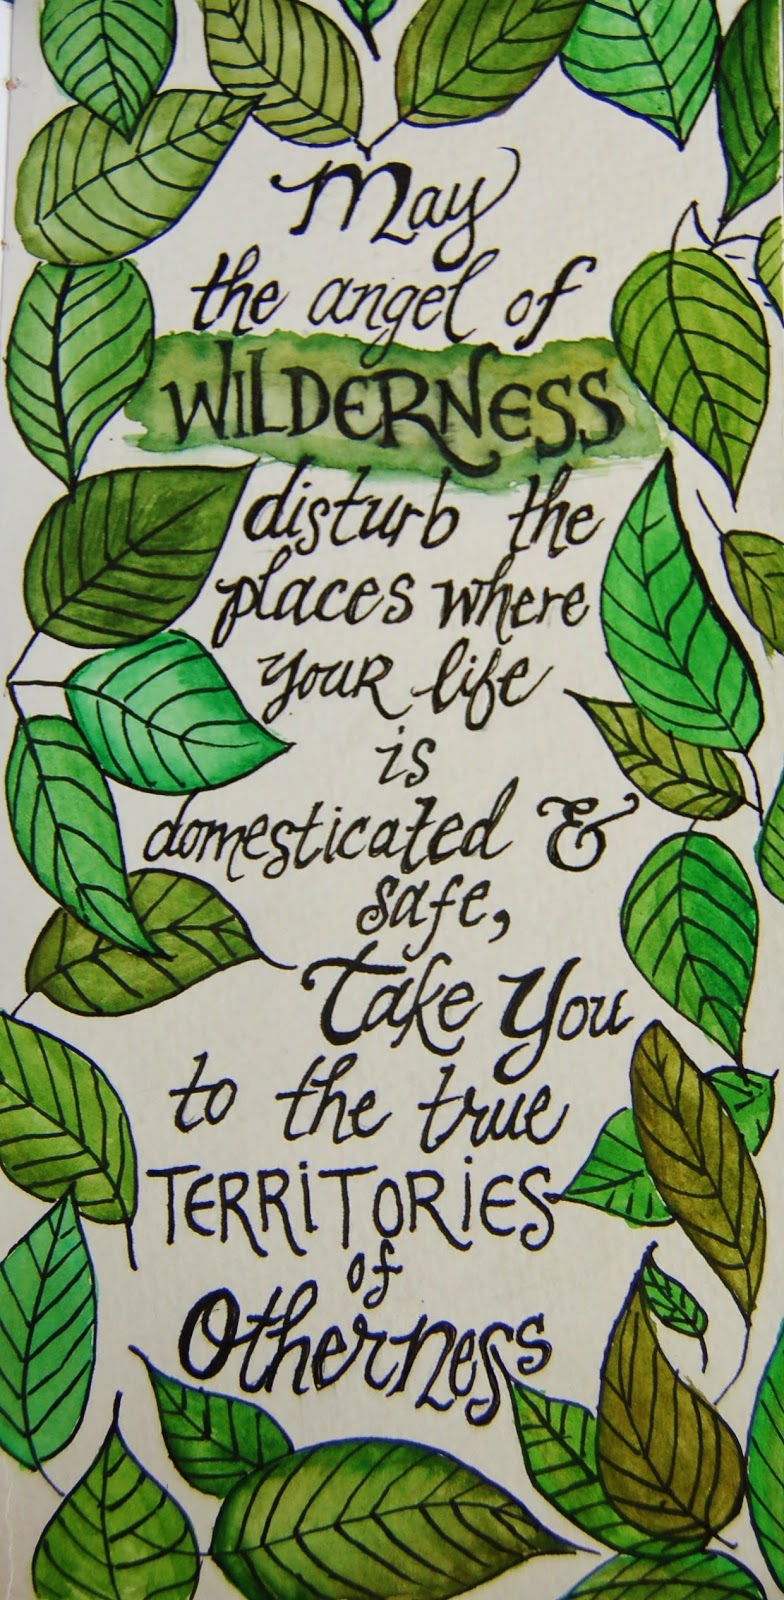 May
the angel of
WILDERNESS
disturb the
places where
your life
is
domesticated &
safe,
Take You
to the true
TERRITORIES
of
Otherness